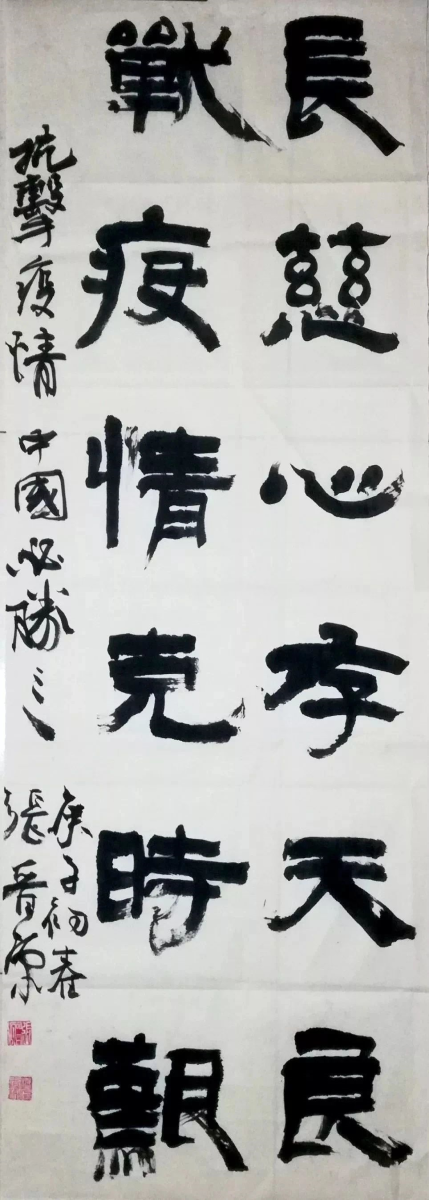 長慈心存天良
戰疫情克時艱
抗擊疫情 中國必勝
庚子初春
張晋